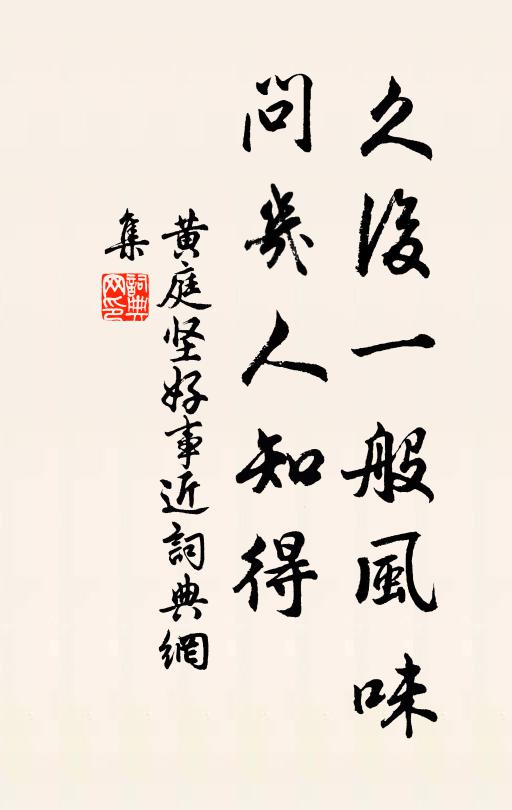 久後一般風味
問幾人知得
黃庭坚好事近詞典網
集
詞典
网印